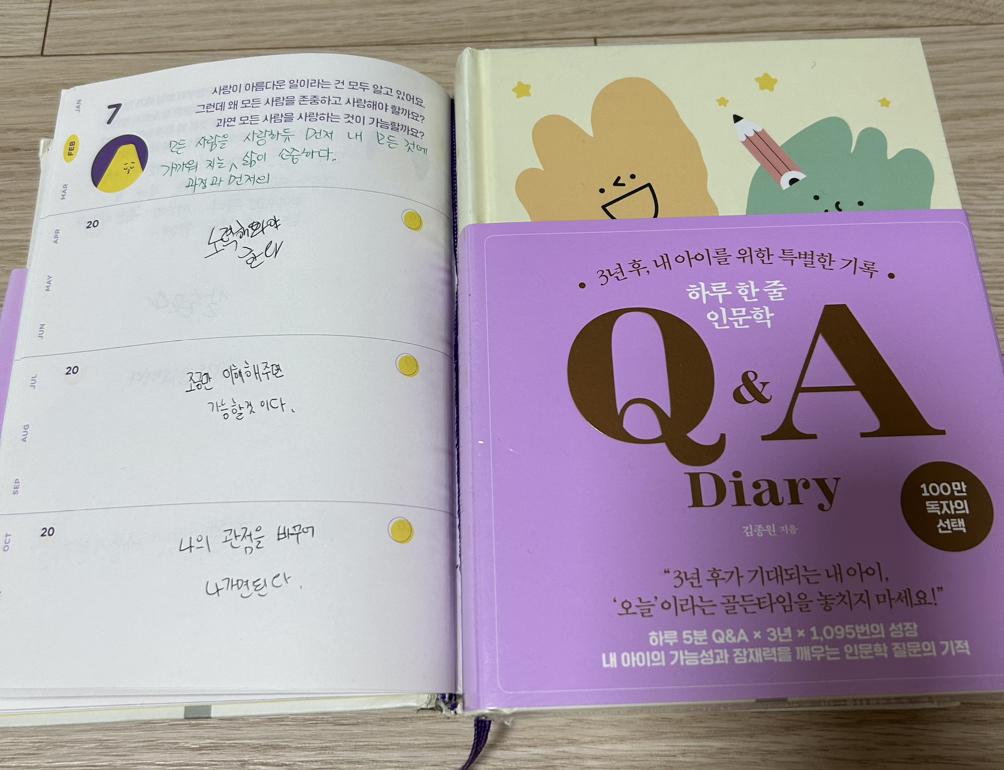 JAN
FEB
MAR
APR
MAY
JUN
JUL
AUG
SEP
OCT
7
사랑이 아름다운 일이라는 건 모두 알고 있어요.
그런데 왜 모든 사람을 존중하고 사랑해야 할까요?
과연 모든 사람을 사랑하는 것이 가능할까요?
모든 사람을 사랑하듯 먼저 내 모든 것에
가까워 지는 삶이 소중하다.
과정과 먼저의
20
노력해봐야
20
조금만 이해해주면
가능할것 이다.
20
나의 관점을 바꾸어
나가면된다.
3년 후, 내 아이를 위한 특별한 기록
하루 한 줄
인문학
Q & A
Diary
김종원 지음
100만
독자의
선택
“3년 후가 기대되는 내 아이,
‘오늘’이라는 골든타임을 놓치지 마세요!”
하루 5분 Q&A × 3년 × 1,095번의 성장
내 아이의 가능성과 잠재력을 깨우는 인문학 질문의 기적